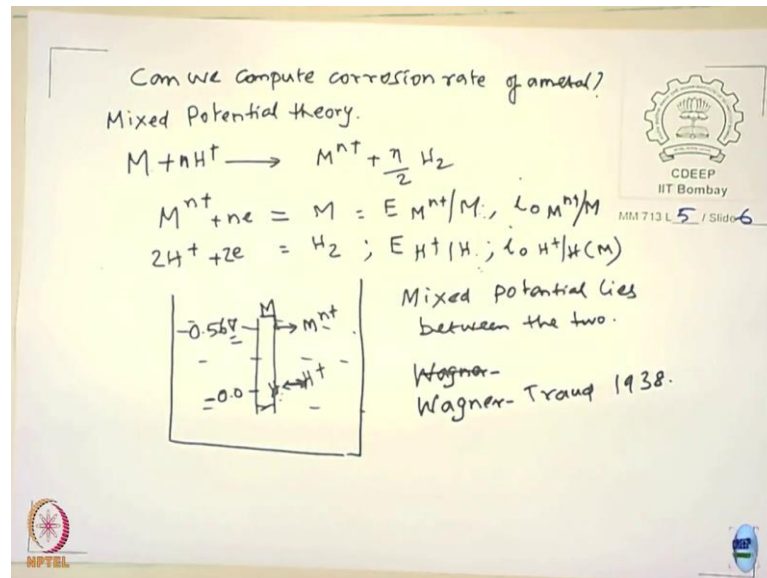 Can we compute corrosion rate of a metal?
Mixed Potential theory.
M + nH⁺ ⟶ Mⁿ⁺ + n/2 H₂
Mⁿ⁺ + ne = M = E Mⁿ⁺/M., i₀ Mⁿ⁺/M
2H⁺ + 2e = H₂ ; E H⁺/H. ; i₀ H⁺/H(M)
M
-0.56V
Mⁿ⁺
-0.0
H⁺
Mixed potential lies
between the two.
Wagner-
Wagner-Traud 1938.
CDEEP
IIT Bombay
MM 713 L 5 / Slide 6
NPTEL